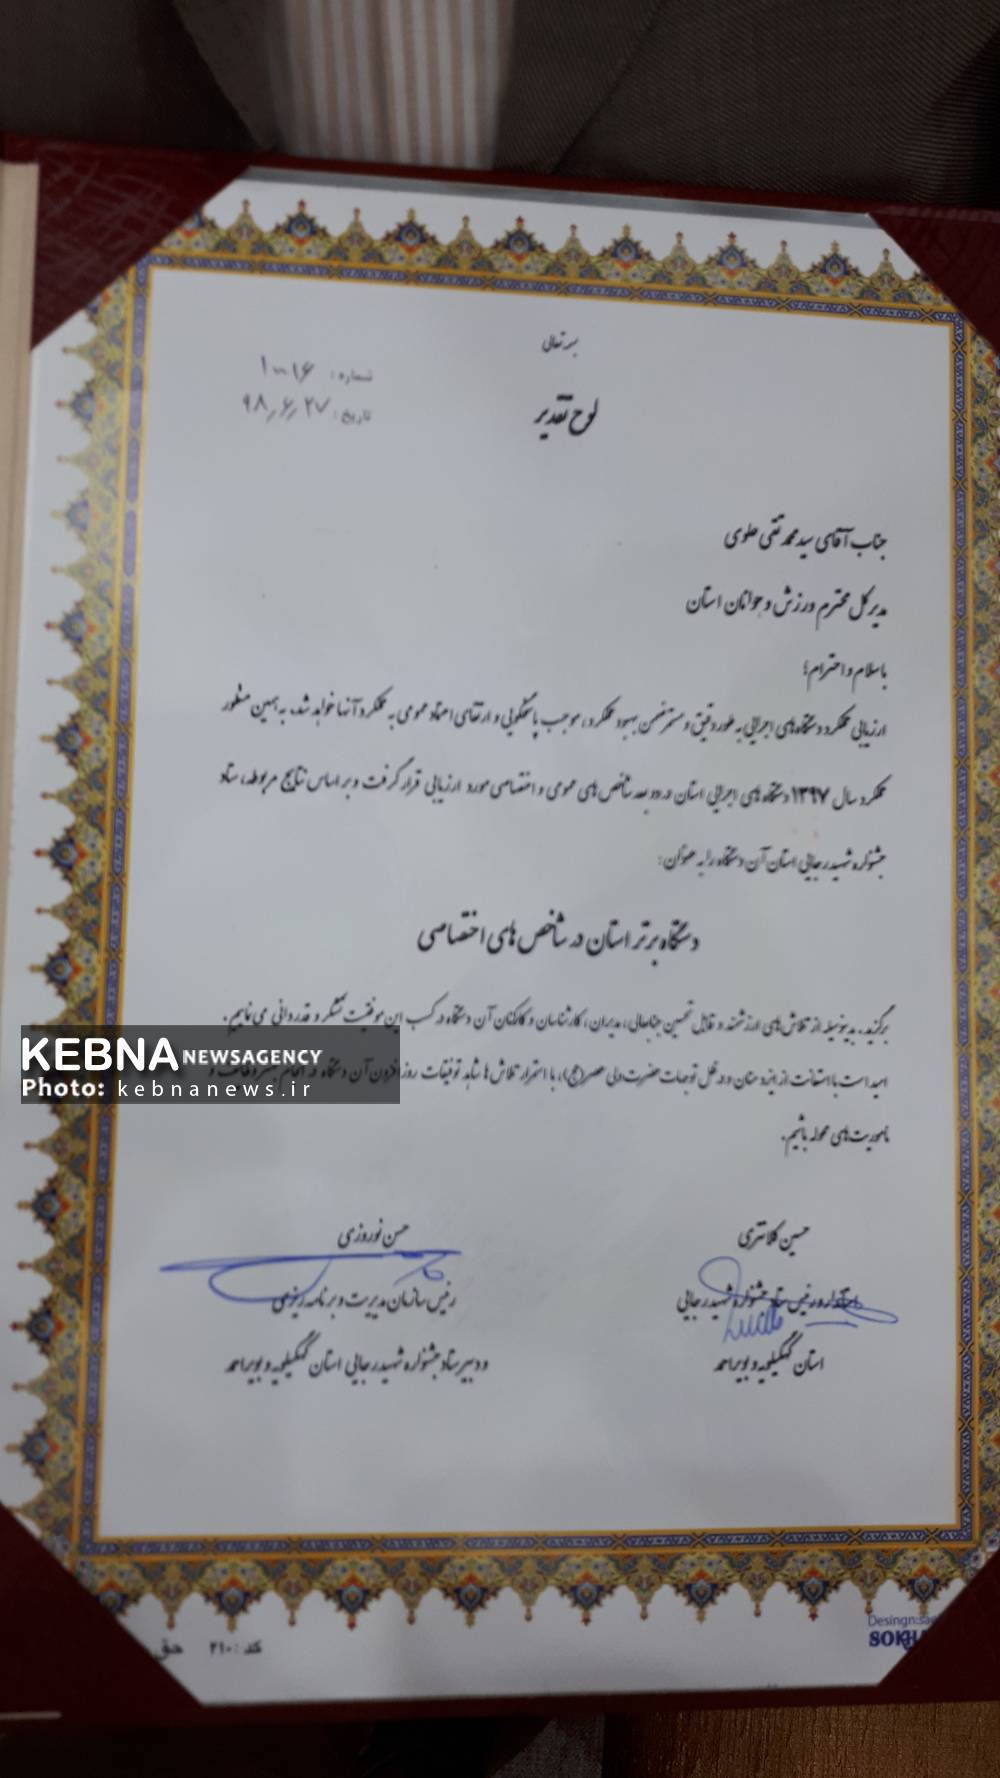 بسمه تعالی
شماره: ۱۰۰۱۶
تاریخ: ۹۸٫۶٫۲۷
لوح تقدیر
جناب آقای سید محمد تقی علوی
مدیرکل محترم ورزش و جوانان استان
با سلام و احترام؛
ارزیابی عملکرد دستگاه‌های اجرایی به طور دقیق و مستمر ضمن بهبود عملکرد، موجب پاسخگویی و ارتقای اعتماد عمومی به عملکرد آنها خواهد شد. به همین منظور
عملکرد سال ۱۳۹۷ دستگاه‌های اجرایی استان در دو بعد شاخص‌های عمومی و اختصاصی مورد ارزیابی قرار گرفت و بر اساس نتایج مربوطه، ستاد
جشنواره شهید رجایی استان آن دستگاه را به عنوان:
دستگاه برتر استان در شاخص‌های اختصاصی
برگزید. بدینوسیله از تلاش‌های ارزشمند و قابل تحسین جنابعالی، مدیران، کارشناسان و کارکنان آن دستگاه در کسب این موفقیت تشکر و قدردانی می‌نماییم.
امید است با استعانت از ایزد منان و در ظل توجهات حضرت ولی عصر (عج)، با استمرار تلاش‌ها شاهد توفیقات روز افزون آن دستگاه در انجام
ماموریت‌های محوله باشیم.
KEBNA NEWSAGENCY
Photo: kebnanews.ir
حسین کلانتری
استاندار و رئیس ستاد جشنواره شهید رجایی
استان کهگیلویه و بویراحمد
حسن نوروزی
رئیس سازمان مدیریت و برنامه ریزی
و دبیر ستاد جشنواره شهید رجایی استان کهگیلویه و بویراحمد
کد: ۲۱۰
Desingn: